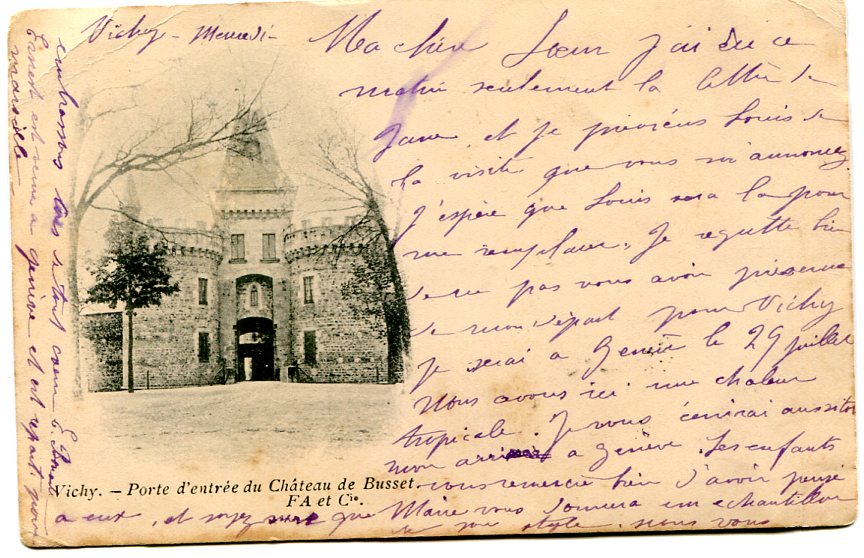 Vichy - Mercredi -
Ma chère Sœur j'ai eu ce
matin seulement la lettre de
Jane, et je préviens Louis de
la visite que vous m'annoncez
J'espère que Louis sera là pour
me remplacer. Je regrette bien
de ne pas vous avoir prévenue
de mon départ pour Vichy
Je serai a Genève le 29 juillet
Nous avons ici une chaleur
tropicale. Je vous écrirai aussitôt
mon arrivée a Genève. Les enfants
vous remercie bien d'avoir pensé
a eux, et soyez sure que Marie vous donnera un echantillon
de son style. nous vous
embrassons tous de tout cœur
Ernest est venu a genève et est reparti pour
marseille
Vichy. – Porte d'entrée du Château de Busset.
FA et Cie.